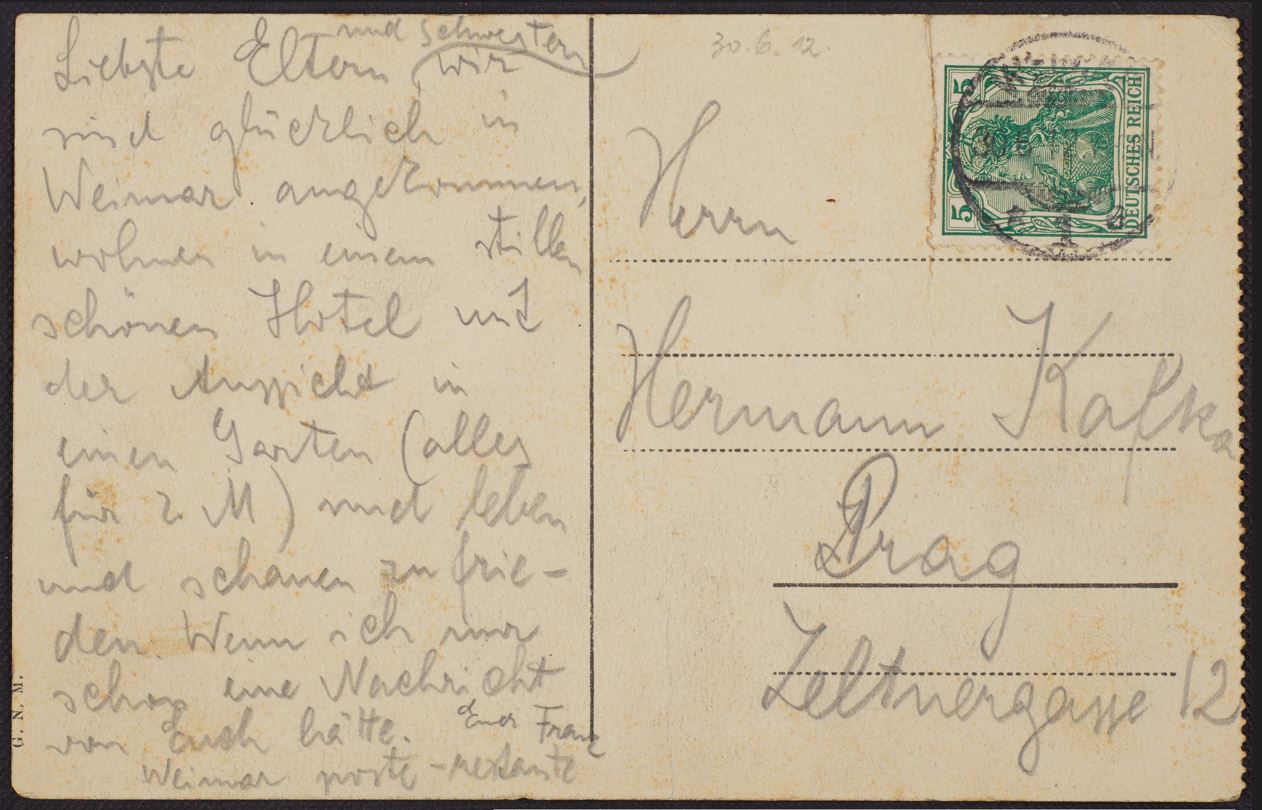 und Schwestern
Liebste Eltern, wir
sind glücklich in
Weimar angekommen,
wohnen in einem stillen
schönen Hotel mit
der Aussicht in
einen Garten (alles
für 2 M) und leben
und schauen zufrie-
den. Wenn ich nur
schon eine Nachricht
von Euch hätte.
Euer Franz
Weimar poste-restante
G. N. M.
30.6.12.
5 5
DEUTSCHES REICH
Herrn
Hermann Kafka
Prag
Zeltnergasse 12